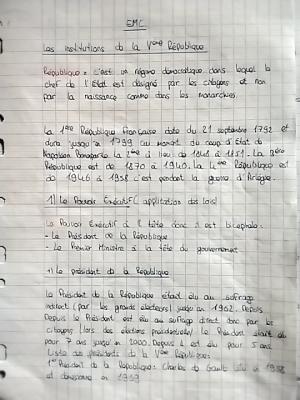 EMC
Les institutions de la Vème République
République : c'est un régime démocratique dans lequel le
chef de l'État est désigné par les citoyens et non
par la naissance comme dans les monarchies.
La 1ère République française date du 21 septembre 1792 et
dura jusqu'en 1799 au moment du coup d'État de
Napoléon Bonaparte. La 2ème à lieu de 1848 à 1851. La 3ème
République est de 1870 à 1940. La 4ème République est
de 1946 à 1958 c'est pendant la guerre d'Algérie.
1) Le Pouvoir Exécutif (application des lois)
Le Pouvoir Exécutif à tête est bicéphale :
- Le Président de la République
- Le Premier Ministre à la tête du gouvernement
1) Le président de la République
Le Président de la République était élu au suffrage
indirect (par les grands électeurs) jusqu'en 1962. Depuis
Depuis le Président est élu au suffrage direct donc par les
citoyens (lors des élections présidentielles) le Président était élu
pour 7 ans jusqu'en 2000. Depuis il est élu pour 5 ans.
Liste des présidents de la Vème République :
1er Président de la République : Charles de Gaulle élu en 1958
et 1959